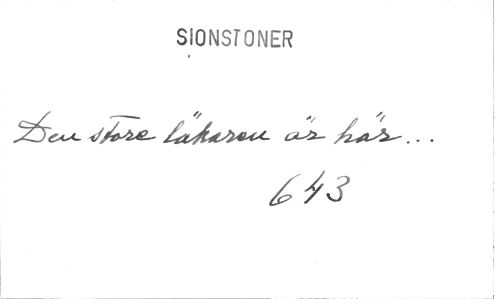 SIONSTONER
Den store läkaren är här...
643